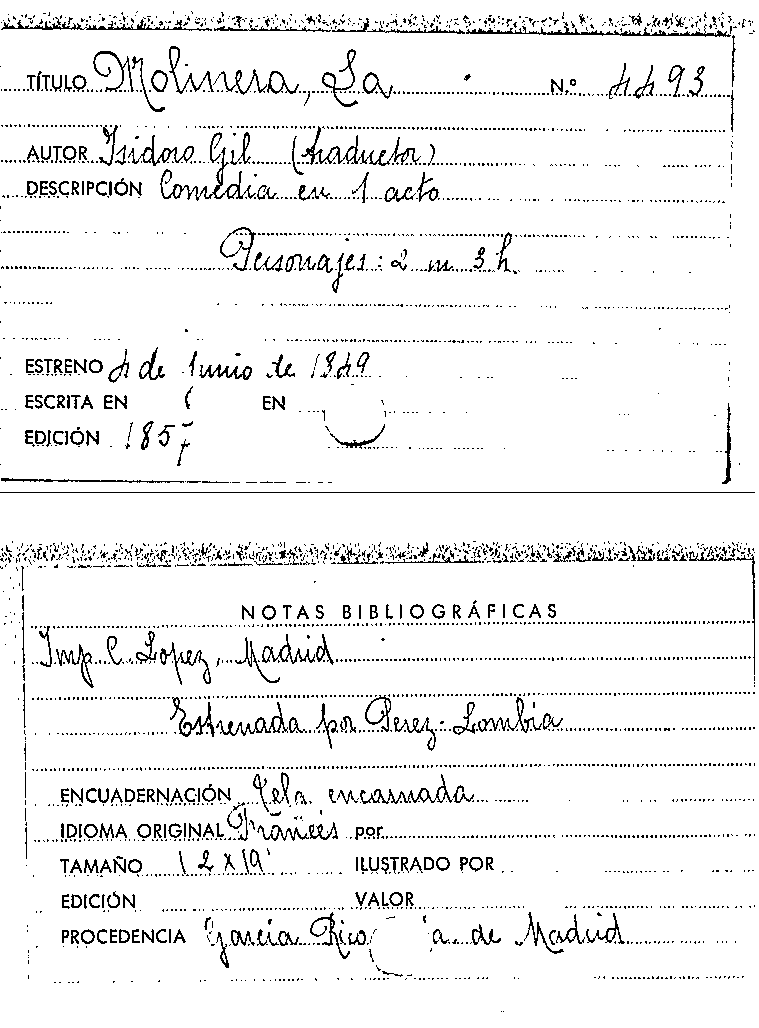 TÍTULO Molinera, La N.º 4493
AUTOR Isidoro Gil (traductor)
DESCRIPCIÓN Comedia en 1 acto
Personajes: 2 m 3 h.
ESTRENO 4 de Junio de 1849
ESCRITA EN EN
EDICIÓN 1857
NOTAS BIBLIOGRÁFICAS
Imp C. Lopez, Madrid
Estrenada por Perez-Lombia
ENCUADERNACIÓN Tela encarnada
IDIOMA ORIGINAL Francés por
TAMAÑO 12 x 19 ILUSTRADO POR
EDICIÓN VALOR
PROCEDENCIA García Rico a. de Madrid